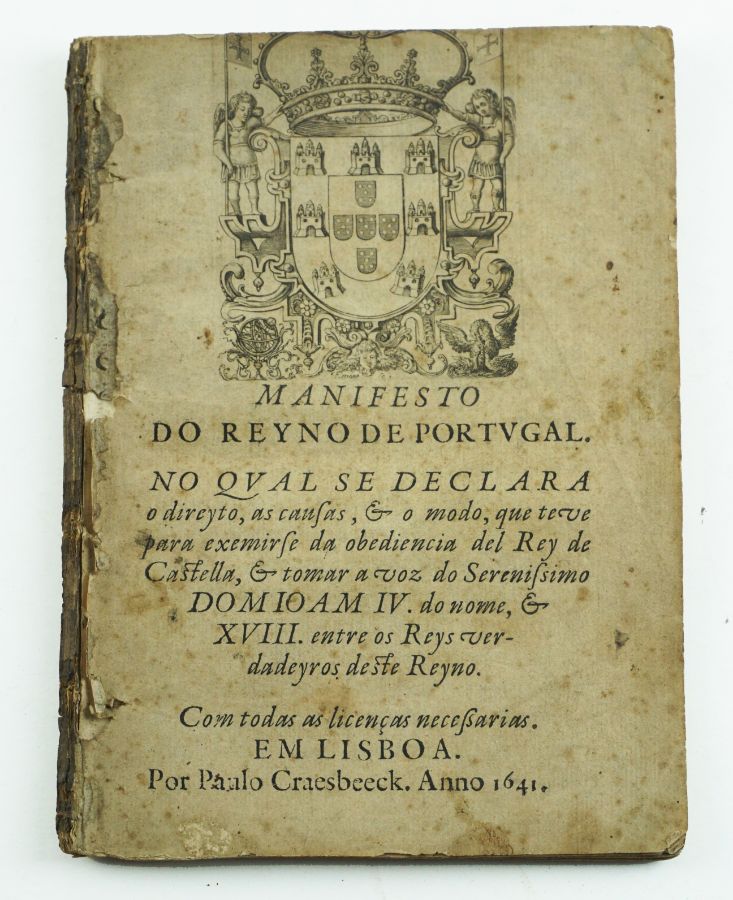 MANIFESTO
DO REYNO DE PORTVGAL.
NO QVAL SE DECLARA
o direyto, as cauſas, & o modo, que teve
para exemirſe da obediencia del Rey de
Caſtella, & tomar a voz do Sereniſsimo
DOM IOAM IV. do nome, &
XVIII. entre os Reys ver-
dadeyros deſte Reyno.
Com todas as licenças neceſſarias.
EM LISBOA.
Por Paulo Craesbeeck. Anno 1641.